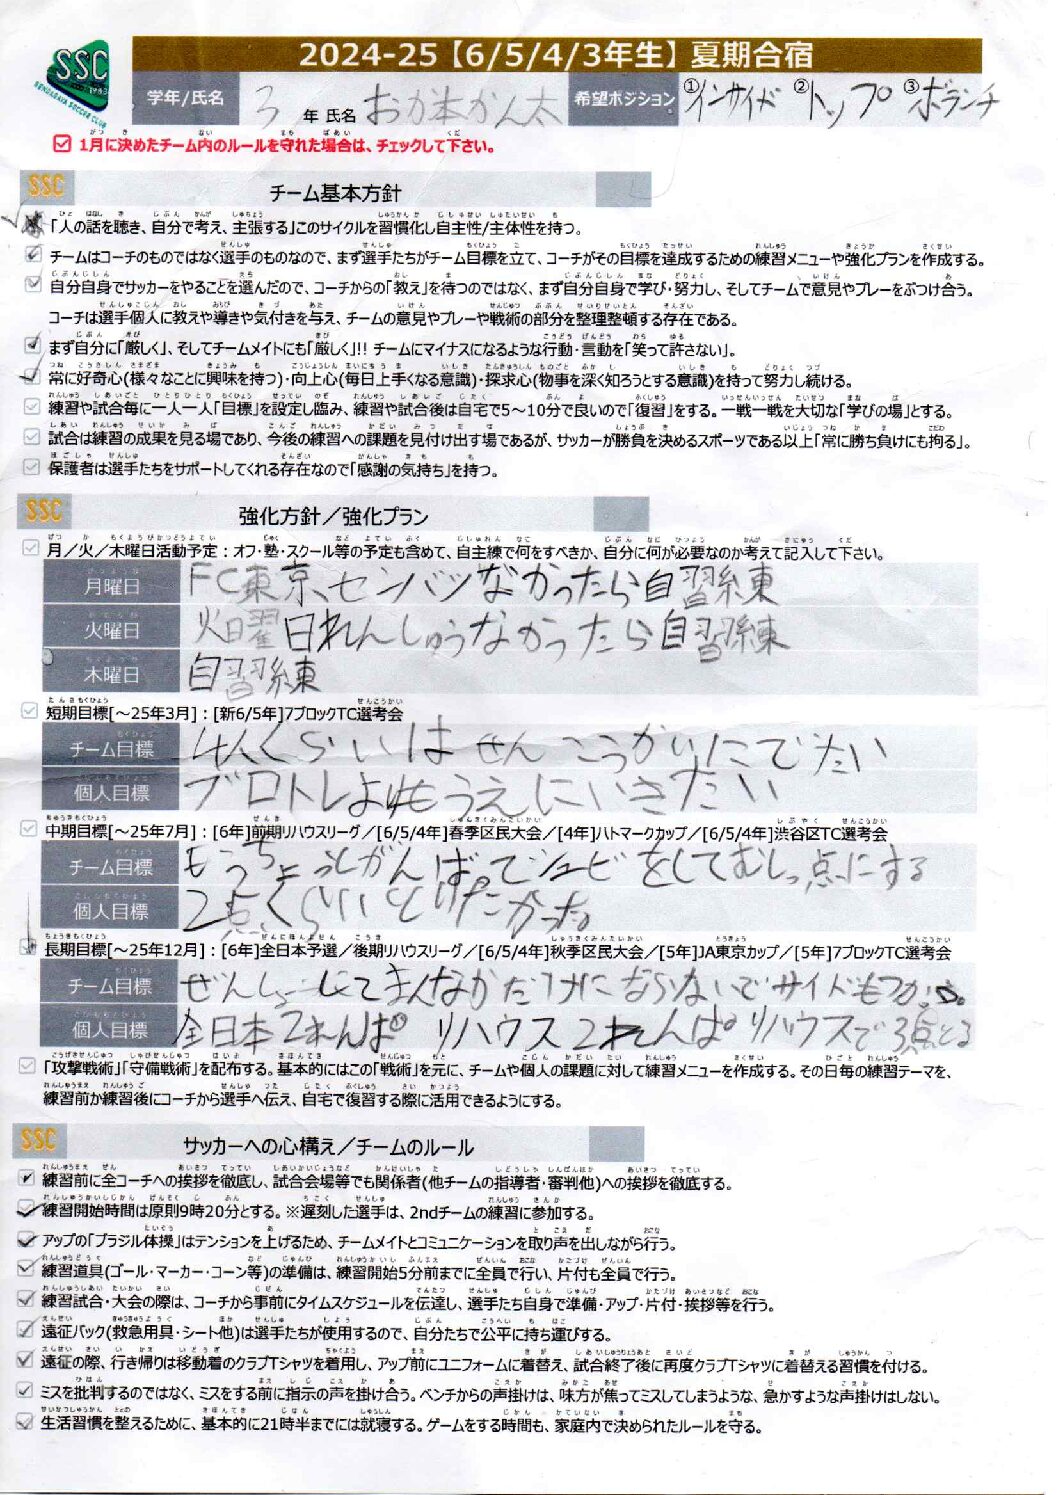 SSC
1983
SENDAGAYA SOCCER CLUB
2024-25【6/5/4/3年生】夏期合宿
学年/氏名 3 年 氏名 おか本かん太 希望ポジション ①インサイド ②トップ ③ボランチ
1月に決めたチーム内のルールを守れた場合は、チェックして下さい。
SSC チーム基本方針
「人の話を聴き、自分で考え、主張する」このサイクルを習慣化し自主性/主体性を持つ。
チームはコーチのものではなく選手のものなので、まず選手たちがチーム目標を立て、コーチがその目標を達成するための練習メニューや強化プランを作成する。
自分自身でサッカーをやることを選んだので、コーチからの「教え」を待つのではなく、まず自分自身で学び・努力し、そしてチームで意見やプレーをぶつけ合う。
コーチは選手個人に教えや導きや気付きを与え、チームの意見やプレーや戦術の部分を整理整頓する存在である。
まず自分に「厳しく」、そしてチームメイトにも「厳しく」!! チームにマイナスになるような行動・言動を「笑って許さない」。
常に好奇心(様々なことに興味を持つ)・向上心(毎日上手くなる意識)・探求心(物事を深く知ろうとする意識)を持って努力し続ける。
練習や試合毎に一人一人「目標」を設定し臨み、練習や試合後は自宅で5〜10分で良いので「復習」をする。一戦一戦を大切な「学びの場」とする。
試合は練習の成果を見る場であり、今後の練習への課題を見付け出す場であるが、サッカーが勝負を決めるスポーツである以上「常に勝ち負けにも拘る」。
保護者は選手たちをサポートしてくれる存在なので「感謝の気持ち」を持つ。
SSC 強化方針／強化プラン
月／火／木曜日活動予定：オフ・塾・スクール等の予定も含めて、自主練で何をすべきか、自分に何が必要なのか考えて記入して下さい。
月曜日 FC東京、センバツなかったら自習練
火曜日 火曜日れんしゅうなかったら自習練
木曜日 自習練
短期目標[〜25年3月]：[新6/5年]7ブロックTC選考会
チーム目標 4人くらいはせんこうかいにでたい
個人目標 ブロトレよりもうえにいきたい
中期目標[〜25年7月]：[6年]前期リハウスリーグ／[6/5/4年]春季区民大会／[4年]ハトマークカップ／[6/5/4年]渋谷区TC選考会
チーム目標 もうちょっとがんばってシュビをしてむしっ点にする
個人目標 2点くらいとりたかった。
長期目標[〜25年12月]：[6年]全日本予選／後期リハウスリーグ／[6/5/4年]秋季区民大会／[5年]JA東京カップ／[5年]7ブロックTC選考会
チーム目標 ぜんしょうしてまんなかだけにならないでサイドもつかう。
個人目標 全日本2れんぱ。リハウス2れんぱ。リハウスで3点とる
「攻撃戦術」「守備戦術」を配布する。基本的にはこの「戦術」を元に、チームや個人の課題に対して練習メニューを作成する。その日毎の練習テーマを、
練習前か練習後にコーチから選手へ伝え、自宅で復習する際に活用できるようにする。
SSC サッカーへの心構え／チームのルール
練習前に全コーチへの挨拶を徹底し、試合会場等でも関係者(他チームの指導者・審判他)への挨拶を徹底する。
練習開始時間は原則9時20分とする。※遅刻した選手は、2ndチームの練習に参加する。
アップの「ブラジル体操」はテンションを上げるため、チームメイトとコミュニケーションを取り声を出しながら行う。
練習道具(ゴール・マーカー・コーン等)の準備は、練習開始5分前までに全員で行い、片付も全員で行う。
練習試合・大会の際は、コーチから事前にタイムスケジュールを伝達し、選手たち自身で準備・アップ・片付・挨拶等を行う。
遠征バック(救急用具・シート他)は選手たちが使用するので、自分たちで公平に持ち運びする。
遠征の際、行き帰りは移動着のクラブTシャツを着用し、アップ前にユニフォームに着替え、試合終了後に再度クラブTシャツに着替える習慣を付ける。
ミスを批判するのではなく、ミスをする前に指示の声を掛け合う。ベンチからの声掛けは、味方が焦ってミスしてしまうような、急かすような声掛けはしない。
生活習慣を整えるために、基本的に21時半までには就寝する。ゲームをする時間も、家庭内で決められたルールを守る。